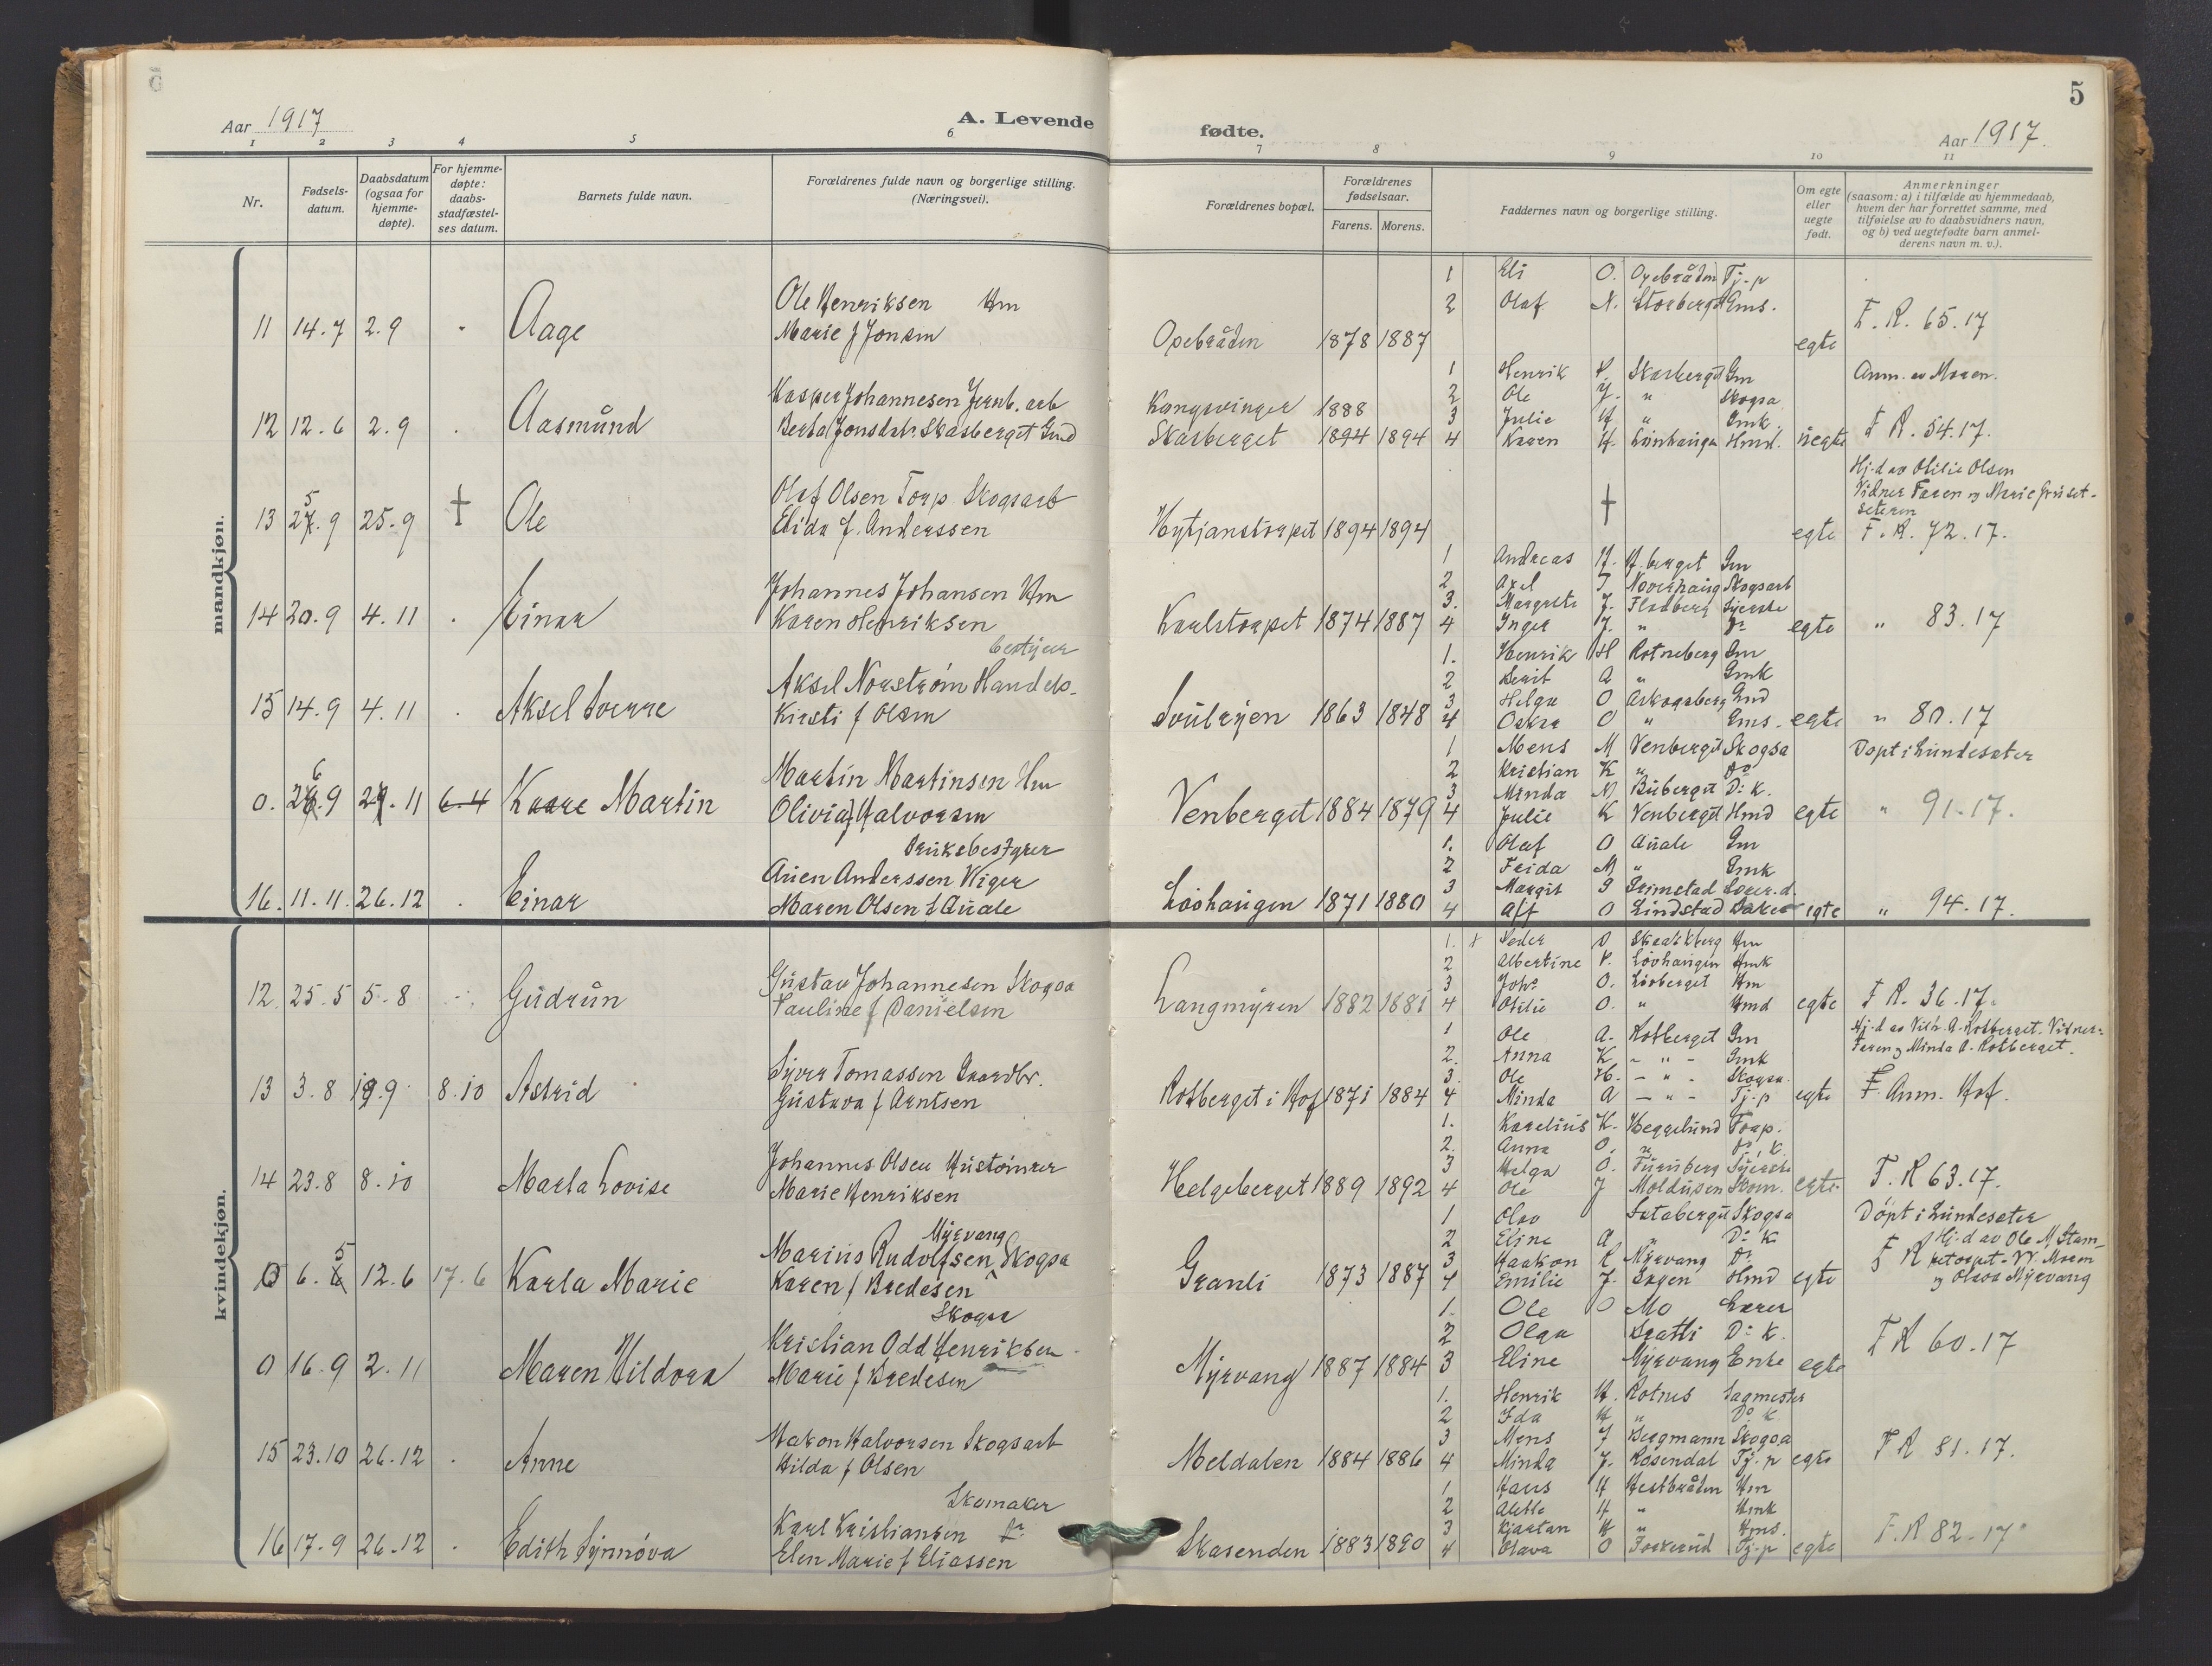 5
Aar 1917
A. Levende fødte.
Aar 1917.
1 2 3 4 5 6 7 8 9 10 11
Nr.
Fødsels-datum.
Daabsdatum (ogsaa for hjemme-døpte).
For hjemme-døpte: daabs-stadfæstel-ses datum.
Barnets fulde navn.
Forældrenes fulde navn og borgerlige stilling. (Næringsvei).
Forældrenes bopæl.
Forældrenes fødselsaar.
Farens. Morens.
Faddernes navn og borgerlige stilling.
Om egte eller uegte født.
Anmerkninger (saasom: a) i tilfælde av hjemmedaab, hvem der har forrettet samme, med tilføielse av to daabsvidners navn, og b) ved uegtefødte barn anmel-derens navn m. v.).
mandkjøn.
11 14.7 2.9 . Aage
Ole Henriksen Hm
Marie f Jonsen
Opebråden 1878 1887
1 Eli O. Opebråden Tj.p
2 Olaf N. Storberget Gms.
egte
F. R. 65.17
12 12.6 2.9 . Aasmund
Kasper Johannesen Jernb. arb
Berta Jonsdatr. Skasberget Gmd
Kongsvinger 1888
Skasberget 1894 1894
1 Henrik P. Skasberget Gm
2 Ole J. " Skogsa
3 Julie H " Gmk.
4 Karen H. Lünhaugen Hmd.
uegte
Anm. av Moren.
F R. 54.17.
13 27.9 5 25.9 † Ole
Olaf Olsen Torp Skogsarb
Elida f. Anderssen
Hytjanstorpet 1894 1894
†
egte
Hj.d av Otilie Olsen
Vidner Faren og Marie Gruset-
seteren
F. R. 72.17.
14 20.9 4.11 . Einar
Johannes Johansen Hm
Karen Henriksen
Karlstorpet 1874 1887
1 Andreas H. H.berget Gm
2 Axel J Noverhaug Skogsarb
3. Margrete J. Flodberg Syerske
4 Inger J. " Do
egte
" 83.17
15 14.9 4.11 . Aksel Sverre
bestyrer
Aksel Norstrøm Handels-
Kirsti f Olsen
Svulryen 1863 1848
1. Henrik H Rotneberg Gm
2 Berit A " Gmk
3 Helga O Askogsberg Gmd
4 Oskar O " Gms.
egte
" 80.17
0. 26.9 6 27.11 6.4 Kaare Martin
Martin Martinsen Hm
Olivia f Halvorsen
Venberget 1884 1879
1 Mens M Venberget Skogsa
2 Kristian K " Do
3 Minda M Buberget Do K.
4 Julie K Venberget Hmd
egte
Döpt i Lundesæter
" 91.17.
16. 11.11. 26.12 . Einar
Brüksbestyrer
Auen Anderssen Kiger
Maren Olsen f Auale
Lövhaugen 1871 1880
1. Olaf O Auale Gm
2 Frida M " Gmk
3 Margit S Grimstad Lærer.d.
4 Alf O Lindstad Baker
egte
" 94.17.
kvindekjøn.
12. 25.5 5.8 Gudrun
Gustav Johannesen Skogsa
Pauline f Danielsen
Langmyren 1882 1881
1. x Peder O Skaakberg Hm
2 Albertine P. Lövhaugen Hmk
3 Johs O. Lövberget Hm
4 Otilie O. " Hmd
egte
F R. 36.17.
13 3.8 19.9 8.10 Astrid
Syver Tomassen Gaardbr.
Gustava f Arntsen
Rotberget i Hof 1871 1884
1 Ole A. Rotberget Gm
2. Anna K - " - Gmk
3. Ole H. - " - Skogsa
4 Minda A - " - Tj.p
egte
Hj.d av Vilh. A. Rotberget. Vidner:
Faren og Minda A. Rotberget.
F. Anm. Hof.
14 23.8 8.10 Marta Lovise
Johannes Olsen Hustömrer
Marie Henriksen
Helgeberget 1889 1892
1. Karelius K. Heggelund Torp.
2. Anna O. " Do K.
3 Helga O. Furuberg Syerske
4 Ole J Moldusen Skom.
egte.
F. R 63.17.
0 6.6 5 12.6 17.6 Karla Marie
Myrvang
Marius Rudolfsen Skogsa
Karen f Bredesen
Granli 1873 1887
1 Olav Satabergit Skogsa
2 Eline A " Do K
3 Haakon R Myrvang Do
4 Emilie J. Skyen Hmd
egte
Döpt i Lundesæter
Hj.d av Ole M Stam-
F R petorpet. W. Moren
og Olava Myrvang
0 16.9 2.11 Maren Hildora
Skogsa
Kristian Odd Henriksen
Marie f Bredesen
Myrvang 1887 1884
1. Ole O Mo Lærer
2 Olga Bratli Do K.
3 Eline Myrvang Enke
egte
F R 60.17
15 23.10 26.12 . Anne
Hakon Halvorsen Skogsarb
Hilda f Olsen
Meldalen 1884 1886
1. Henrik H. Rotnes Sagmester
2 Ida H " Do K
3 Mens J Bergmann Skogsa
4 Minda J. Rosendal Tj.p
egte
F R 81.17.
16 17.9 26.12 . Edith Synnöva
Skomaker
Karl Kristiansen
Elen Marie f Eliassen
Skasenden 1883 1890
1 Hans H Hestbråten Hm
2 Alette H " Hmk
3 Kjartan H " Hms.
4 Olava O Foskerud Tj.p
egte
F. R 82.17